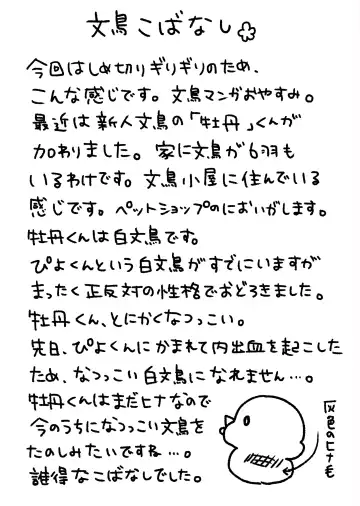 文鳥こばなし
今回はしめ切りギリギリのため、
こんな感じです。文鳥マンガおやすみ。
最近は新人文鳥の「牡丹」くんが
加わりました。家に文鳥が6羽も
いるわけです。文鳥小屋に住んでいる
感じです。ペットショップのにおいがします。
牡丹くんは白文鳥です。
ぴよくんという白文鳥がすでにいますが
まったく正反対の性格でおどろきました。
牡丹くん、とにかくなつっこい。
先日、ぴよくんにかまれて内出血を起こした
ため、なつっこい白文鳥になれません…。
牡丹くんはまだヒナなので
今のうちになつっこい文鳥を
たのしみたいですね…。
誰得なこばなしでした。
灰色のヒナ毛